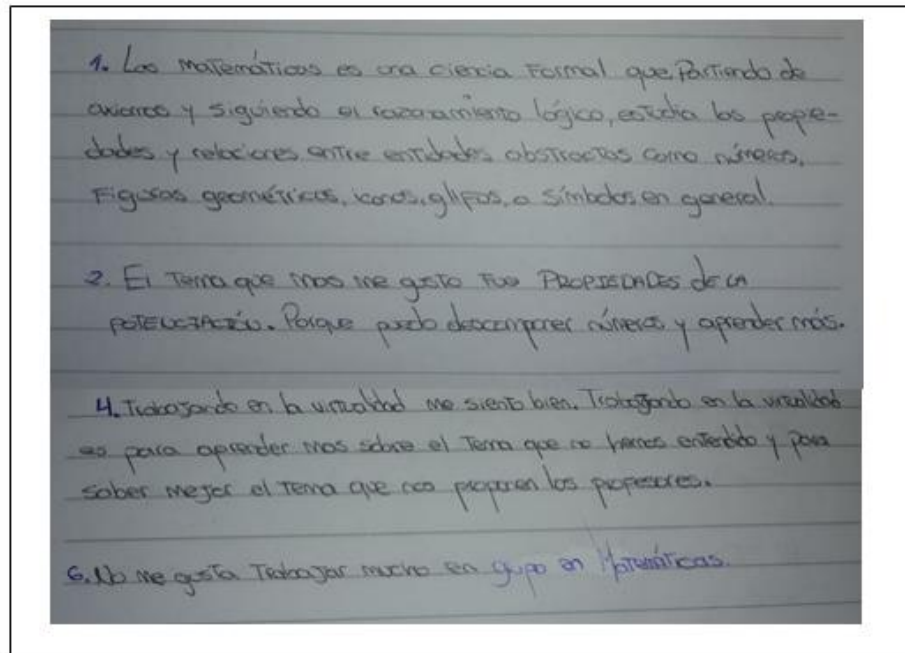 1. Las matemáticas es una ciencia Formal que Partiendo de
axiomas y siguiendo el razonamiento lógico, estudia las propie-
dades y relaciones entre entidades abstractas como números,
Figuras geométricas, iconos, glifos, o símbolos en general.
2. El Tema que mas me gusto Fue PROPIEDADES de LA
POTENCIACIÓN. Porque puedo descomponer números y aprender más.
4. Trabajando en la virtualidad me siento bien. Trabajando en la virtualidad
es para aprender mas sobre el Tema que no hemos entendido y para
saber mejor el Tema que nos proponen los profesores.
6. No me gusta Trabajar mucho en grupo en Matemáticas.